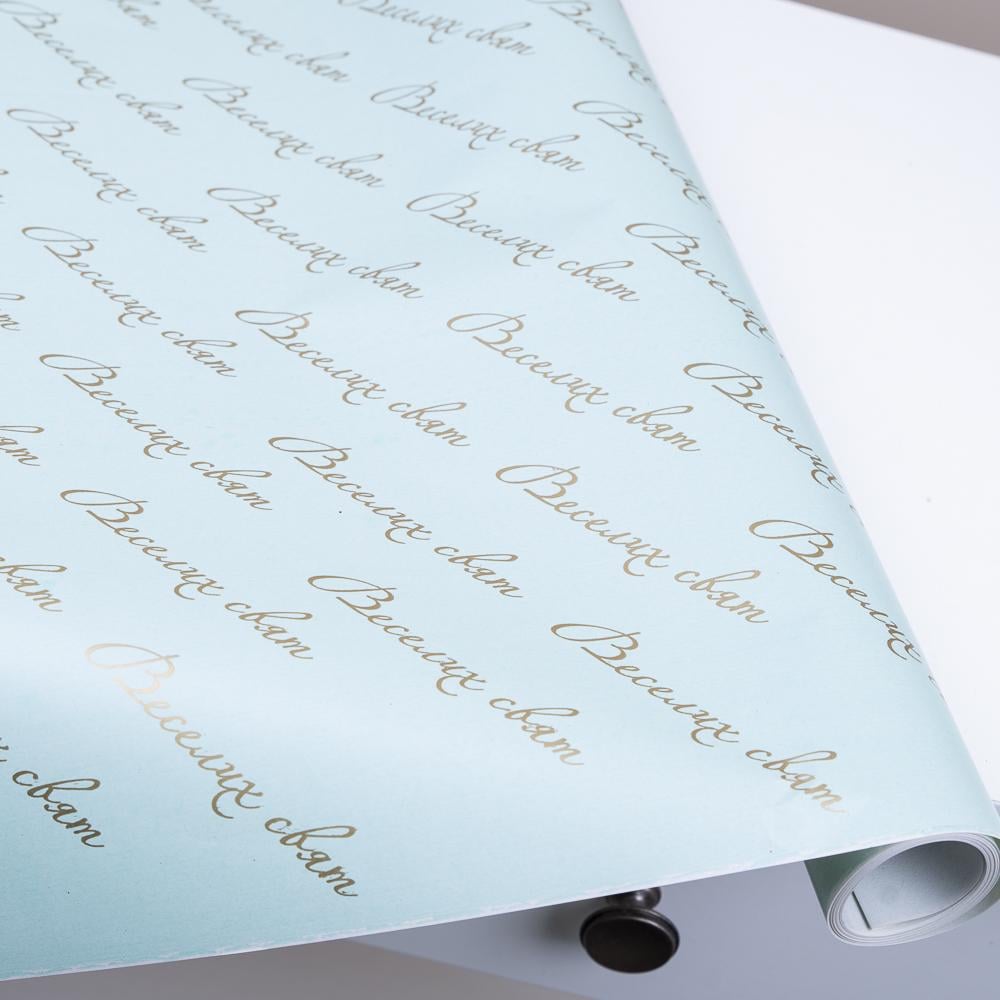 Веселих свят
Веселих свят
Веселих свят
Веселих
Веселих свят
Веселих свят
Веселих свят
Веселих
Веселих свят
Веселих свят
Веселих свят
Веселих
Веселих свят
Веселих свят
Веселих свят
Веселих
Веселих свят
Веселих свят
Веселих свят
Веселих
Веселих свят
Веселих свят
Веселих свят
Веселих свят
свят